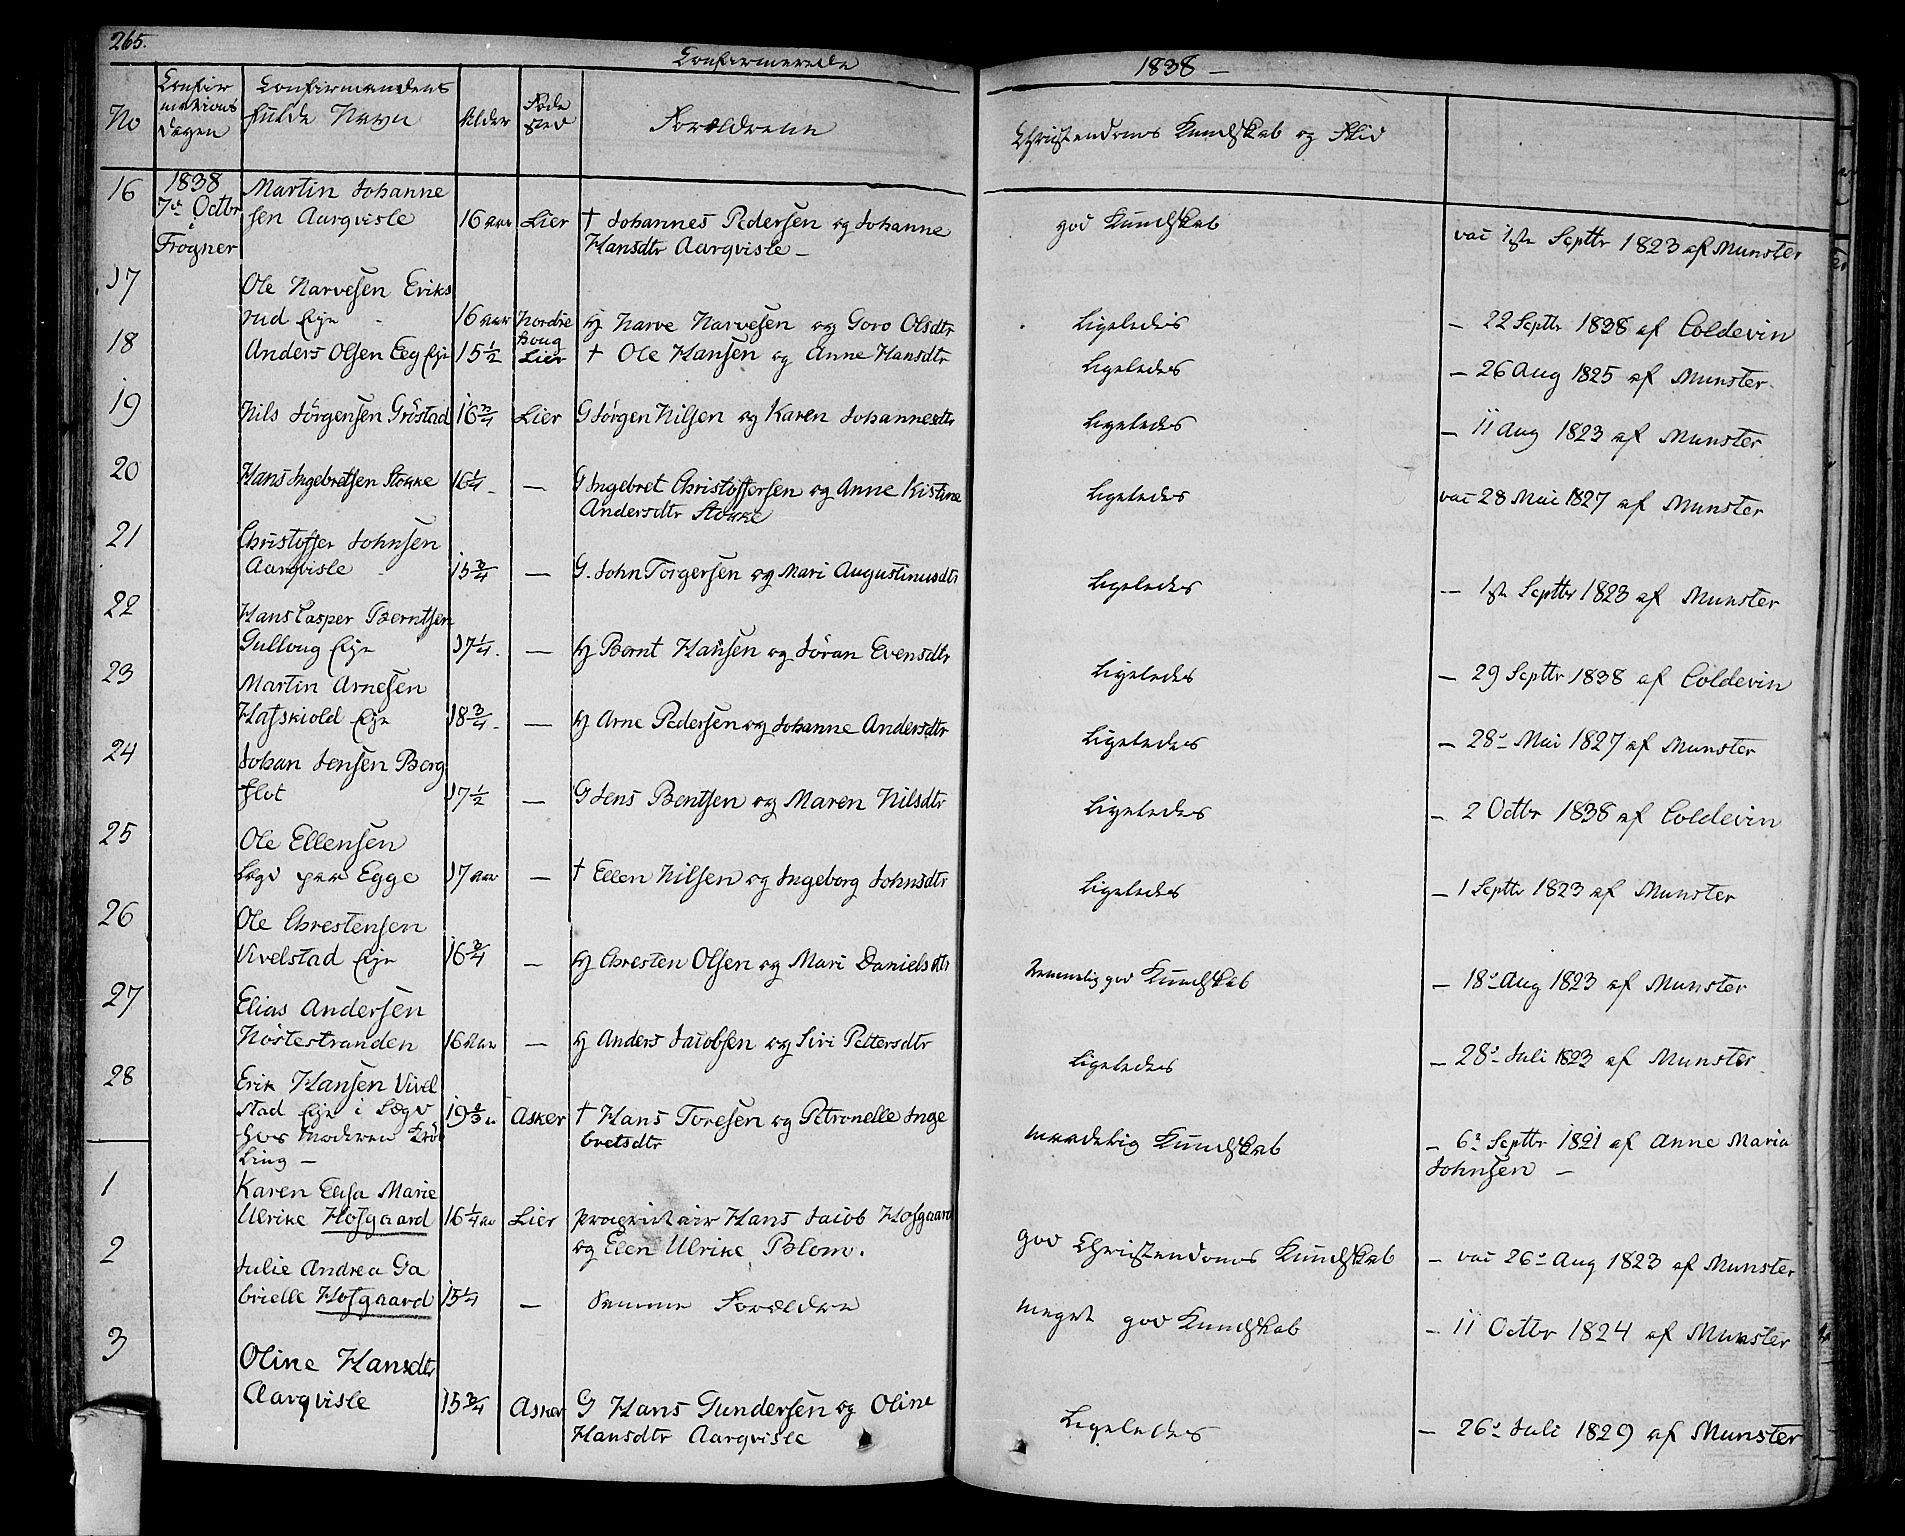 265.
Confirmerede
1838 –
No
Confir
mations
dagen
Confirmandens
fulde Navn
Alder
Føde
sted
Forældrene
Christendoms Kundskab og Flid
16
1838
7de Octbr
Frogner
Martin Johanne
sen Aarqvisle
16 aar
Lier
† Johannes Pedersen og Johanne
Hansdtr Aarqvisle –
god Kundskab
vac 1ste Septbr 1823 af Munster
17
Ole Narvesen Eriks
rud Eje
16 aar
Nordre
houg
G Narve Narvesen og Goro Olsdtr
Ligeledes
– 22 Septbr 1838 af Coldevin
18
Anders Olsen Eeg Eje
15 1/2
Lier
† Ole Hansen og Anne Hansdtr
Ligeledes
– 26 Aug 1825 af Munster
19
Nils Jörgensen Gröstad
16 3/4
Lier
G Jörgen Nilsen og Karen Johannesdtr
Ligeledes
– 11 Aug 1823 af Munster
20
Hans Ingebretsen Stokke
16 1/4
–
G Ingebret Christoffersen og Anne Kistine
Andersdtr Stokke
Ligeledes
vac 28 Mai 1827 af Munster
21
Christoffer Johnsen
Aarqvisle
15 3/4
–
G. John Torgersen og Mari Augustinusdtr
Ligeledes
– 1ste Septbr 1823 af Munster
22
Hans Casper Berntsen
Gulloug Eje
17 1/4
–
G Bernt Hansen og Jöran Evensdtr
Ligeledes
– 29 Septbr 1838 af Coldevin
23
Martin Arnesen
Hafskiold Eje
18 3/4
–
G Arne Pedersen og Johanne Andersdtr
Ligeledes
– 28de Mai 1827 af Munster
24
Johan Jensen Berg
flot
17 1/2
–
G Jens Bentsen og Maren Nilsdtr
Ligeledes
– 2 Octbr 1838 af Coldevin
25
Ole Ellensen
Lægd paa Egge
17 aar
–
† Ellen Nilsen og Ingeborg Johnsdtr
Ligeledes
– 1 Septbr 1823 af Munster
26
Ole Chrestensen
Vivelstad Eje
16 3/4
–
G Chresten Olsen og Mari Danielsdtr
temmelig god Kundskab
– 18de Aug 1823 af Munster
27
Elias Andersen
Nöstestranden
16 aar
–
G Anders Jacobsen og Siri Pettersdtr
Ligeledes
– 28de Juli 1823 af Munster
28
Erik Hansen Vivel
stad Eje i Lægd
hos Moderen
ling –
19
Asker
† Hans Toresen og Petronelle Inge
bretsdtr
maadelig Kundskab
– 6te Septbr 1821 af Anne Maria
Johnsen –
1
Karen Elisa Marie
Ulrike Hofgaard
16 1/4 aar
Lier
Proprietair Hans Jacob Hofgaard
og Elen Ulrike Blom.
god Christendoms Kundskab
– vac 26de Aug 1823 af Munster
2
Julie Andrea Ga
brielle Hofgaard
15 1/4
–
Samme Forældre
meget god Kundskab
– 11 Octbr 1824 af Munster
3
Oline Hansdtr
Aarqvisle
15 3/4
Asker
G Hans Gundersen og Oline
Hansdtr Aarqvisle
Ligeledes
– 26de Juli 1829 af Munster